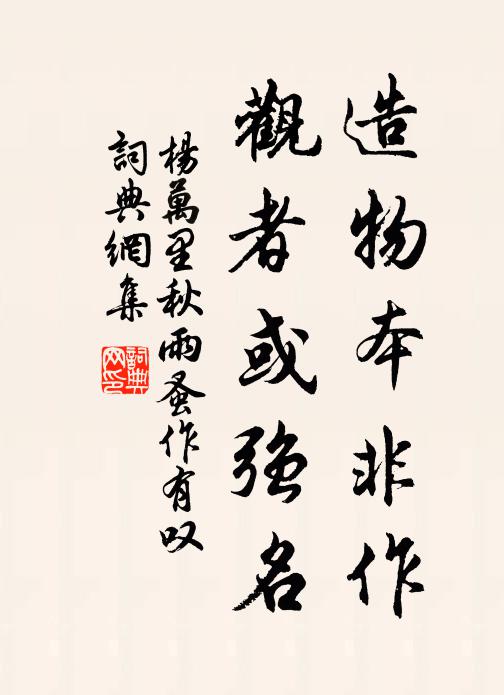 造物本非作
觀者或強名
楊萬里秋雨蚤作有叹
詞典網集
詞典
网印